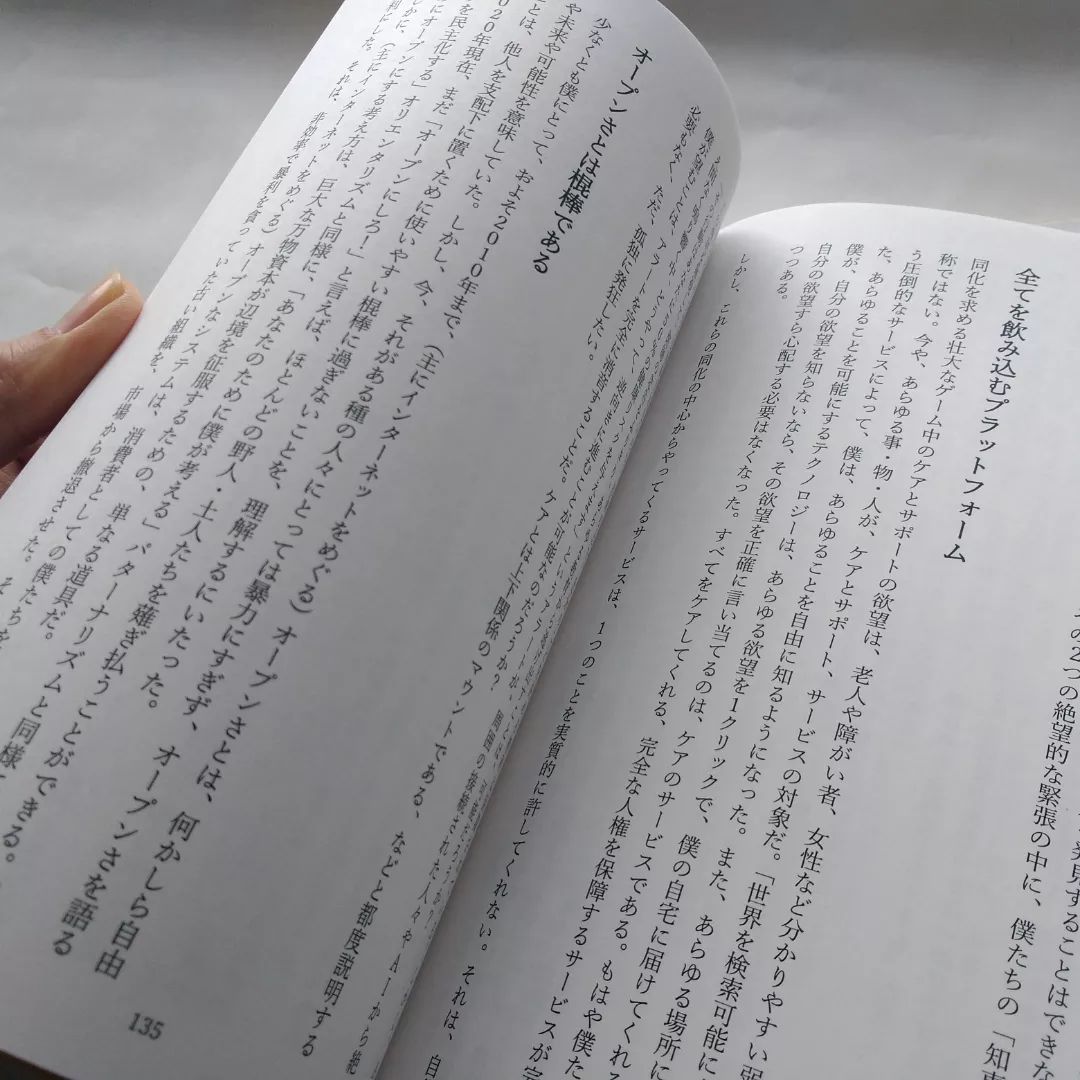 発見することはできな
の2つの絶望的な緊張の中に、僕たちの「知
全てを飲み込むプラットフォーム
同化を求める壮大なゲーム中のケアとサポートの欲望は、老人や障がい者、女性など分かりやすい弱
称ではない。今や、あらゆる事・物・人が、ケアとサポート、サービスの対象だ。「世界を検索可能に
う圧倒的なサービスによって、僕は、あらゆることを自由に知るようになった。また、あらゆる場所に
た、あらゆることを可能にするテクノロジーは、あらゆる欲望を1クリックで、僕の自宅に届けてくれる
僕が、自分の欲望を知らないなら、その欲望を正確に言い当てるのは、ケアのサービスである。もはや僕た
自分の欲望すら心配する必要はなくなった。すべてをケアしてくれる、完全な人権を保障するサービスが完
つつある。
しかし、これらの同化の中心からやってくるサービスは、1つのことを実質的に許してくれない。それは、自
僕が望むことは、アラートを完全に消音することだ。ケアとは上下関係のマウントである、などと都度説明する
必要もなく、ただ、孤独に発狂したい。
オープンさとは棍棒である
少なくとも僕にとって、およそ2010年まで、（主にインターネットをめぐる）オープンさとは、何かしら自由
や未来や可能性を意味していた。しかし、今、それがある種の人々にとっては暴力にすぎず、オープンさを語る
ことは、他人を支配下に置くために使いやすい棍棒に過ぎないことを、理解するにいたった。
020年現在、まだ「オープンにしろ！」と言えば、ほとんどの野人・土人たちを薙ぎ払うことができる。
を民主化する」オリエンタリズムと同様に、「あなたのために僕が考える」パターナリズムと同様
にオープンにする考え方は、巨大な万物資本が辺境を征服するための、単なる道具だ。
しかに、（主にインターネットをめぐる）オープンなシステムは、消費者としての僕た
利にした。それは、非効率で暴利を貪っていた古い組織を、市場から撤退させた。
135